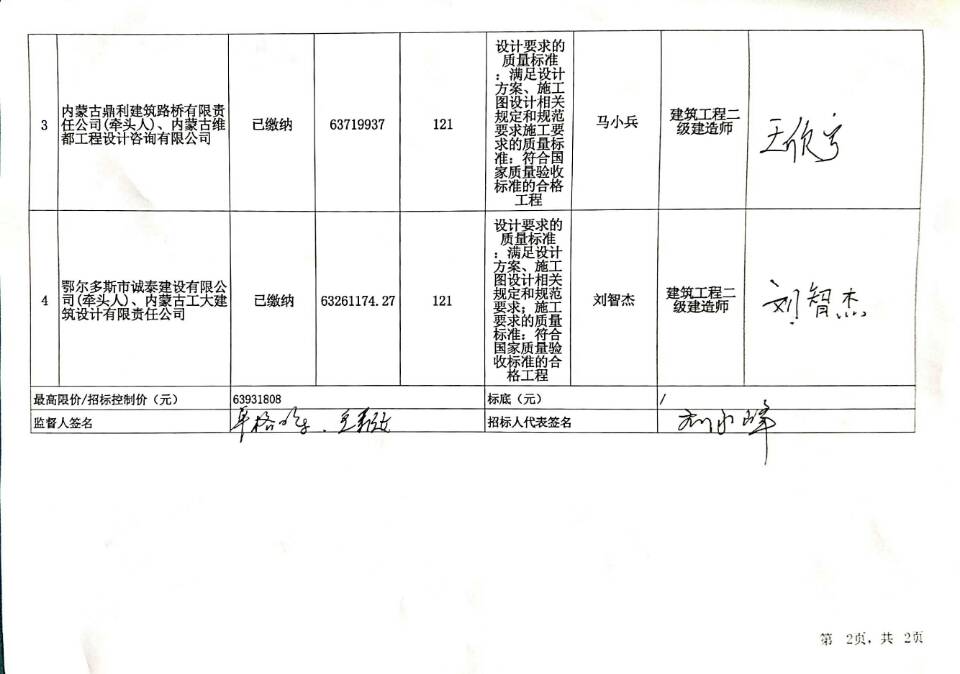 3
内蒙古鼎利建筑路桥有限责
任公司(牵头人)、内蒙古维
都工程设计咨询有限公司
已缴纳
63719937
121
设计要求的
质量标准
：满足设计
方案、施工
图设计相关
规定和规范
要求施工要
求的质量标
准：符合国
家质量验收
标准的合格
工程
马小兵
建筑工程二
级建造师
4
鄂尔多斯市诚泰建设有限公
司(牵头人)、内蒙古工大建
筑设计有限责任公司
已缴纳
63261174.27
121
设计要求的
质量标准
：满足设计
方案、施工
图设计相关
规定和规范
要求；施工
要求的质量
标准：符合
国家质量验
收标准的合
格工程
刘智杰
建筑工程二
级建造师
刘智杰
最高限价/招标控制价（元）
63931808
标底（元）
/
监督人签名
招标人代表签名
第 2页，共 2页